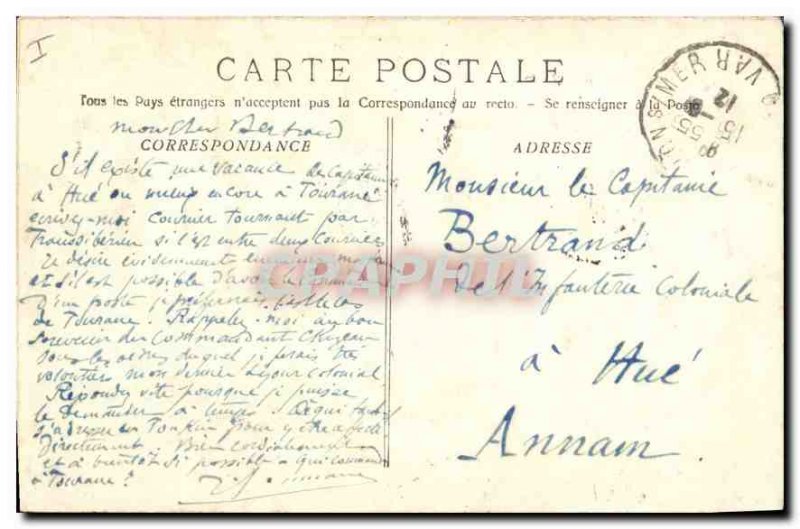 I
CARTE POSTALE
Tous les Pays étrangers n'acceptent pas la Correspondance au recto. - Se renseigner à la Poste
mon cher Bertrand
CORRESPONDANCE
S'il existe une vacance de Capitaine
à Hué ou mieux encore à Tourane
écrivez-moi courrier tournant par
Transsibérien s'il est entre deux courriers
Je désire évidemment
et s'il est possible d'avoir le
d'un poste je préférerais
de Tourane. Rappelez-moi au bon
souvenir du Commandant
sous les ordres duquel je ferais très
volontiers mon dernier séjour colonial
Répondez vite pour que je puisse
le demander à temps. A qui faut-il
s'adresser au Tonkin pour y être
Directement. Bien cordialement
et à bientôt si possible. Qui commande
à Tourane?
ADRESSE
Monsieur le Capitaine
Bertrand
de l'Infanterie Coloniale
à Hué
Annam
S-MER
VAR
12
15
55
CPAPHIL